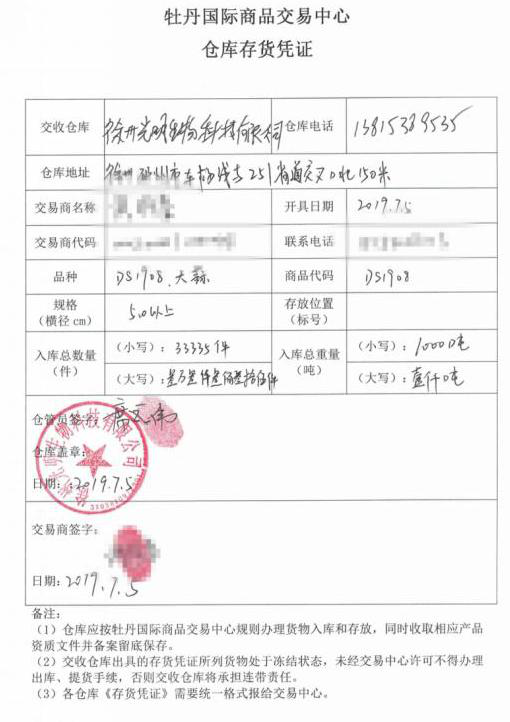 牡丹国际商品交易中心
仓库存货凭证
交收仓库 徐州光明生物科技有限公司 仓库电话 13815389535
仓库地址 徐州邳州市车辐 251省道交叉口北150米
交易商名称 开具日期 2019.7.5
交易商代码 联系电话
品种 DS1908.大蒜 商品代码 DS1908
规格
(横径cm) 5.0以上 存放位置
(标号)
入库总数量
(件) (小写):33335件 入库总重量
(吨) (小写):1000吨
(大写):叁万叁仟叁佰叁拾伍件 (大写):壹仟吨
仓管员签字:
仓库盖章:
徐州光明生物科技有限公司
日期:2019.7.5
交易商签字:
日期:2019.7.5
备注:
(1)仓库应按牡丹国际商品交易中心规则办理货物入库和存放,同时收取相应产品
资质文件并备案留底保存。
(2)交收仓库出具的存货凭证所列货物处于冻结状态,未经交易中心许可不得办理
出库、提货手续,否则交收仓库将承担连带责任。
(3)各仓库《存货凭证》需要统一格式报给交易中心。